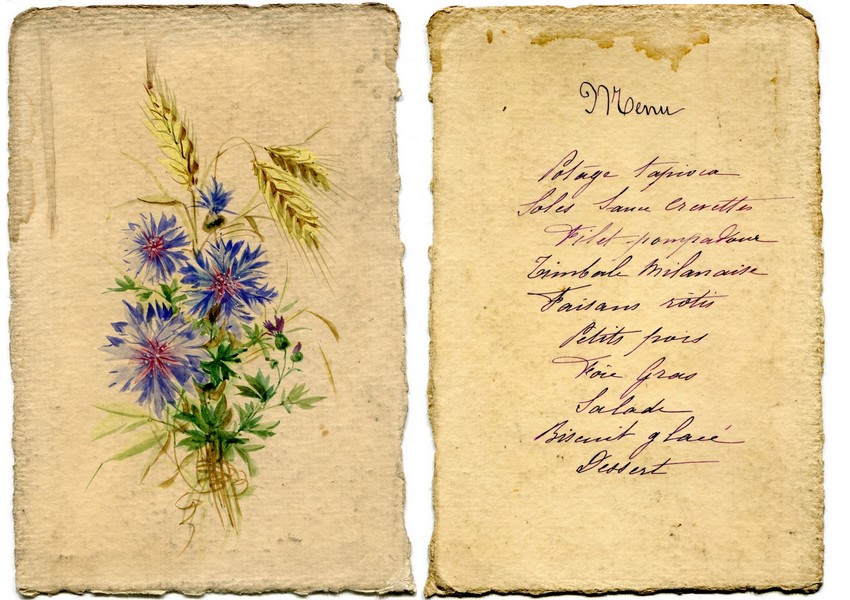 Menu
Potage tapioca
Soles Sauce Crevettes
Filet pompadour
Timbale Milanaise
Faisans rôtis
Petits pois
Foie Gras
Salade
Biscuit glacé
Dessert